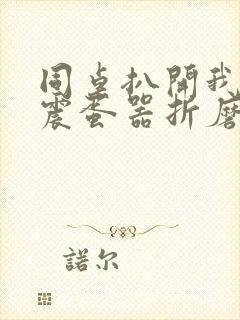 同桌扒開我
震蛋器折磨
諾尔